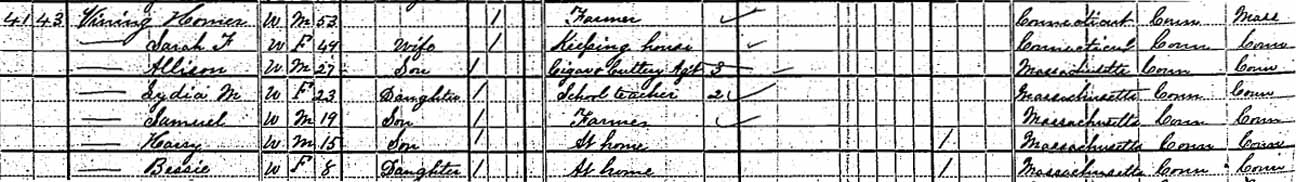 41 43 Vining Homer W M 53 1 Farmer ✓ Connecticut Conn Mass
— Sarah F W F 49 Wife 1 Keeping house ✓ Connecticut Conn Conn
— Allison W M 27 Son 1 Cigar & Cutlery Agt 3 — Massachusetts Conn Conn
— Lydia M W F 23 Daughter 1 School teacher 2 ✓ Massachusetts Conn Conn
— Samuel W M 19 Son 1 Farmer ✓ Massachusetts Conn Conn
— Harry W M 15 Son 1 At home 1 Massachusetts Conn Conn
— Bessie W F 8 Daughter 1 At home 1 Massachusetts Conn Conn